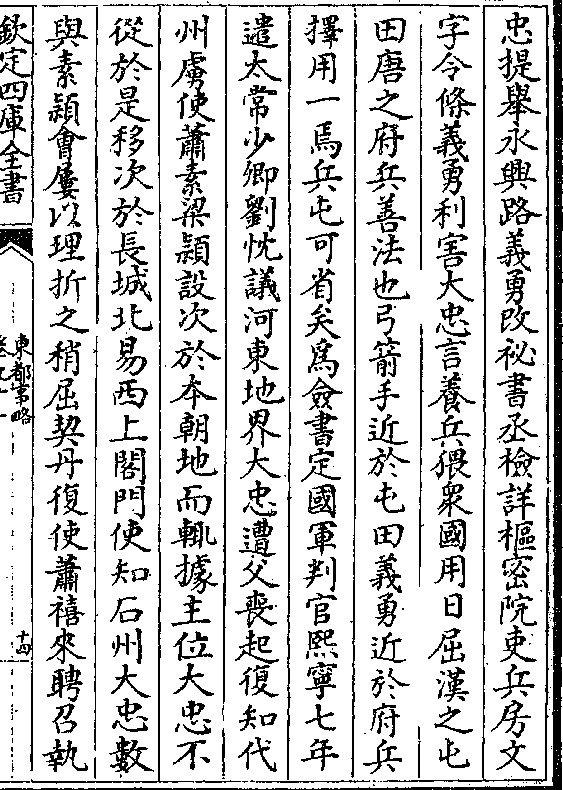 忠提舉永興路義勇改祕書丞檢詳樞密院吏兵房文
字令條義勇利害大忠言養兵猥衆國用日屈漢之屯
田唐之府兵善法也弓箭手近於屯田義勇近於府兵
擇用一焉兵屯可省矣爲僉書定國軍判官熙寧七年
遣太常少卿劉忱議河東地界大忠遭父喪起復知代
州虜使蕭素梁穎設次於本朝地而輒據主位大忠不
從於是移次於長城北易西上閤門使知石州大忠數
與素穎會屢以理折之稍屈契丹復使蕭禧來聘召執
欽定四庫全書
東都事略
十四